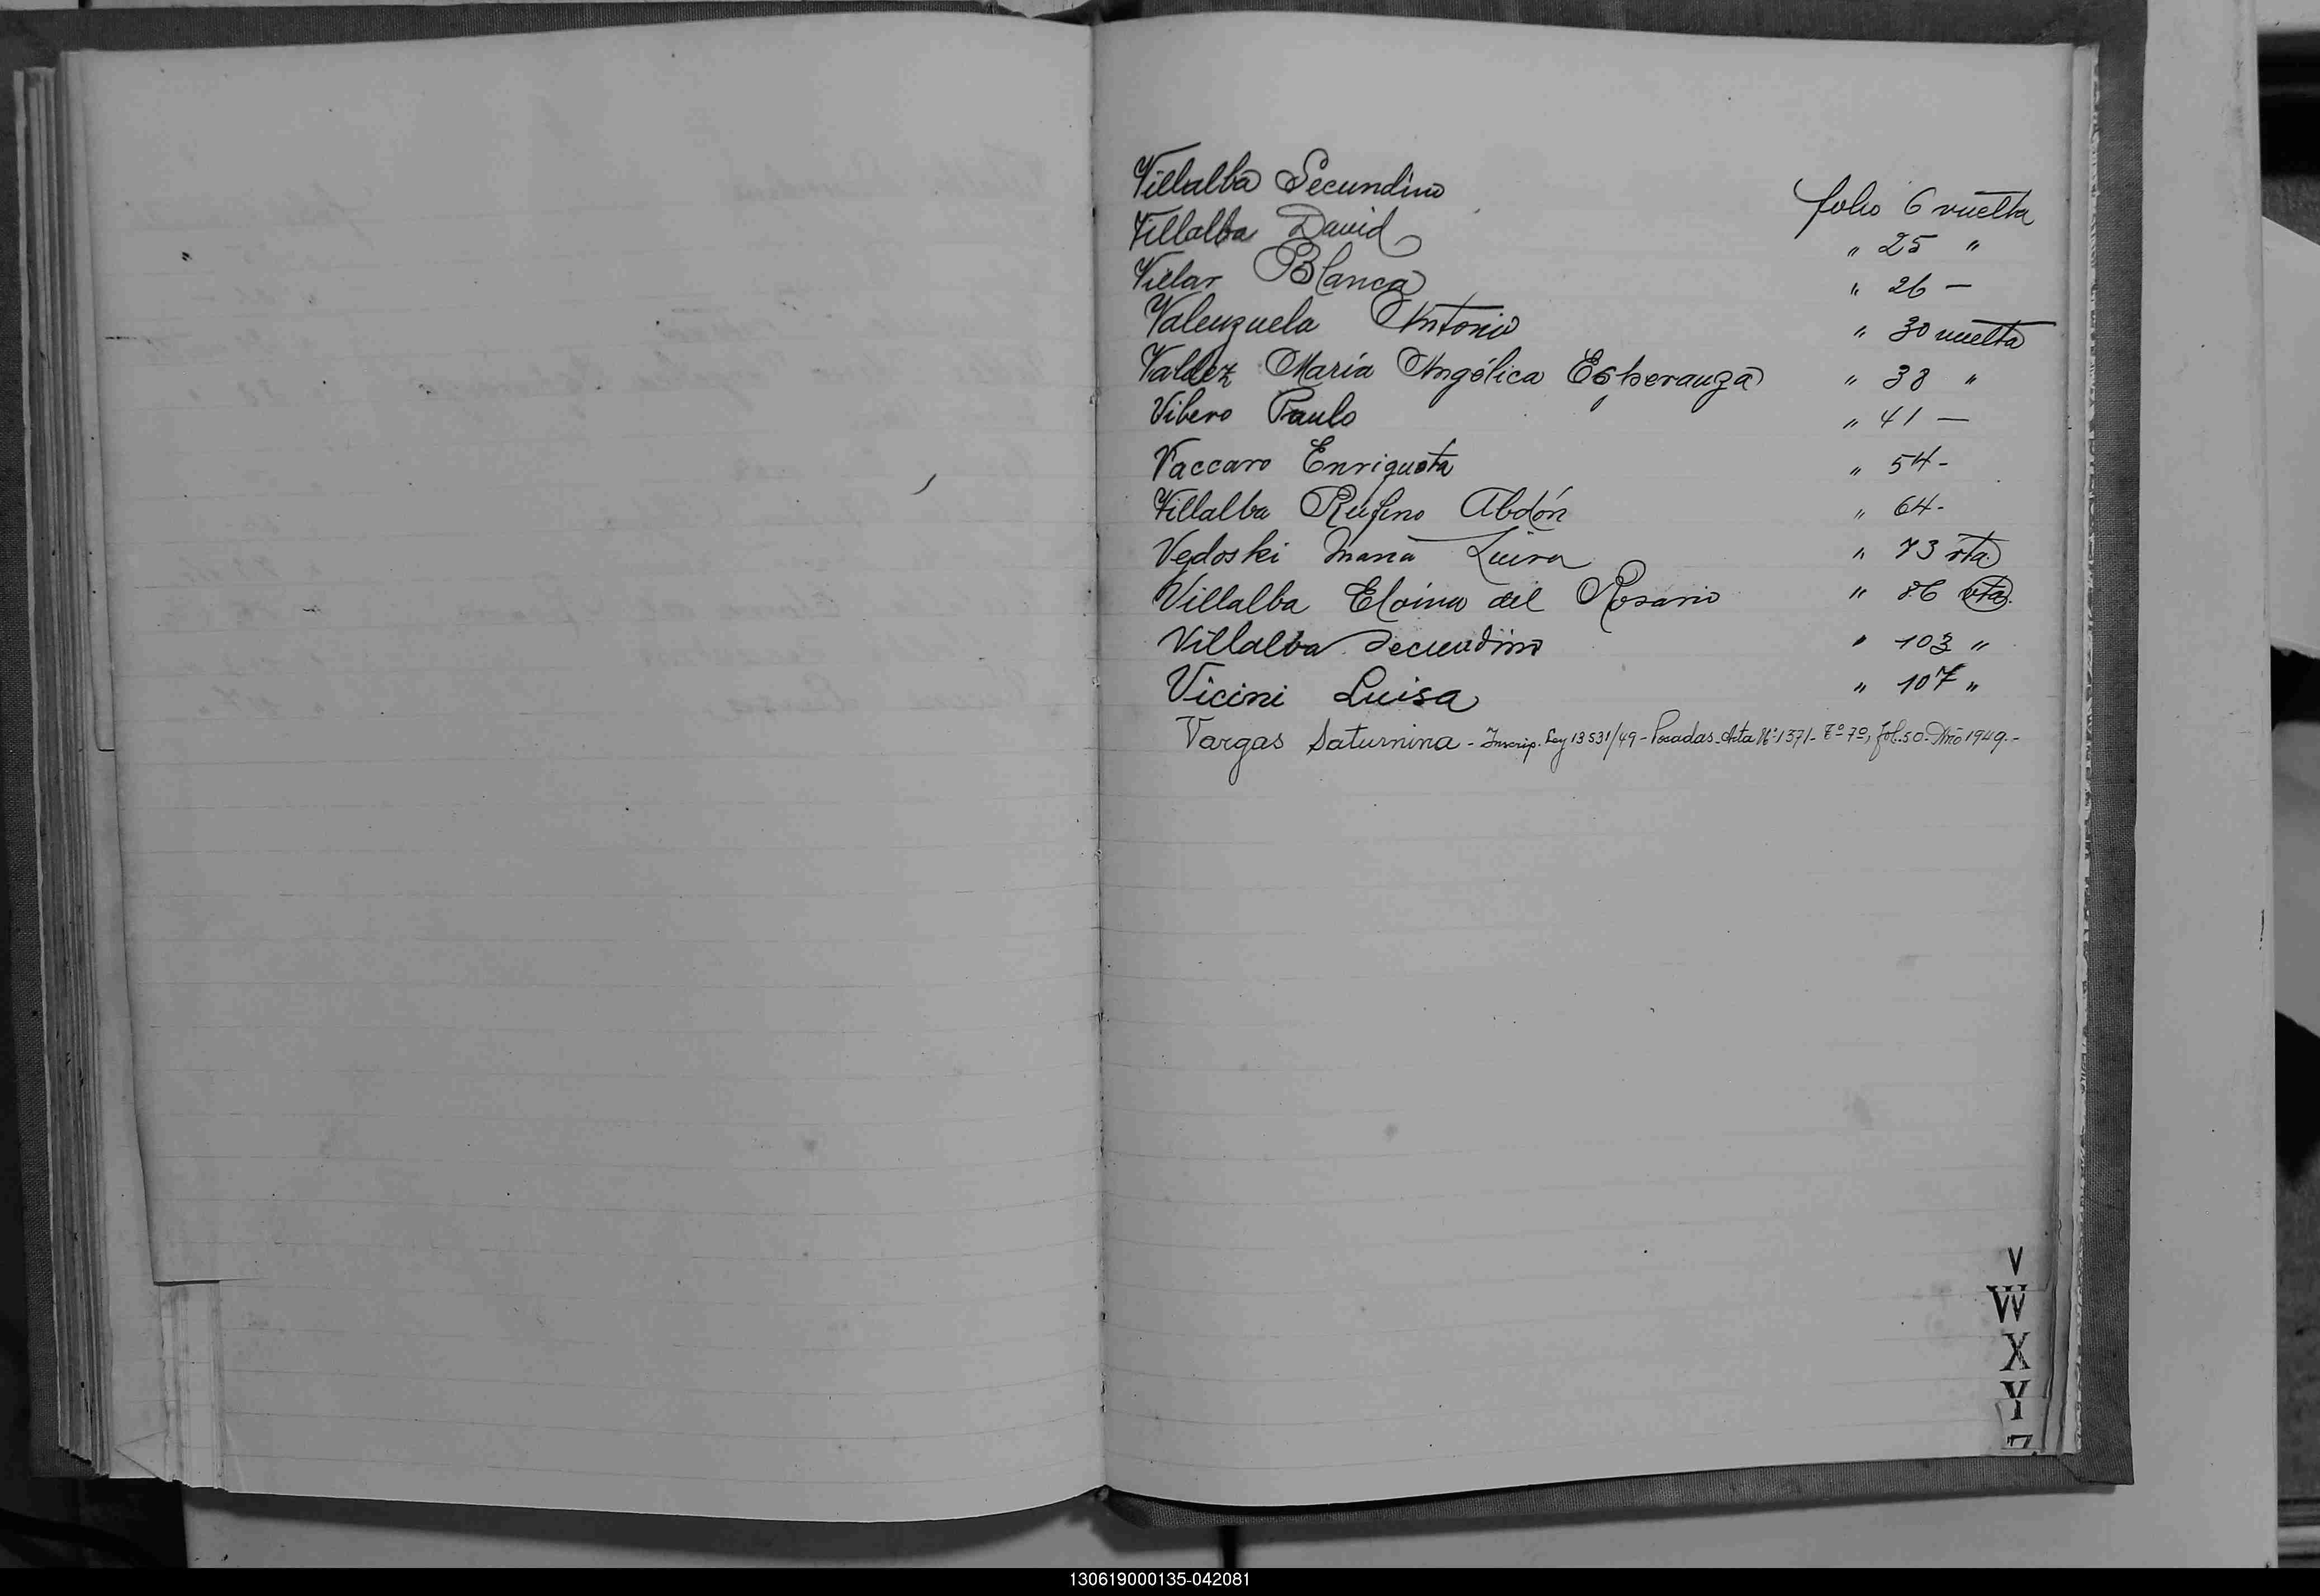 Villalba Secundino folio 6 vuelta
Villalba David " 25 "
Villar Blanca " 26 —
Valenzuela Antonio " 30 vuelta
Valdez María Angélica Esperanza " 38 "
Vibero Paulo " 41 —
Vaccaro Enriqueta " 54 -
Villalba Rufino Abdón " 64 -
Vedoski María Luisa " 73 vta.
Villalba Eloina del Rosario " 86 vta.
Villalba Secundino " 103 "
Vicini Luisa " 107 "
Vargas Saturnina - Inscrip. Ley 13531/49 - Posadas - Acta Nº 1371 - Tº 7º, fol. 50 - Año 1949.-
V
W
X
Y
Z
130619000135-042081